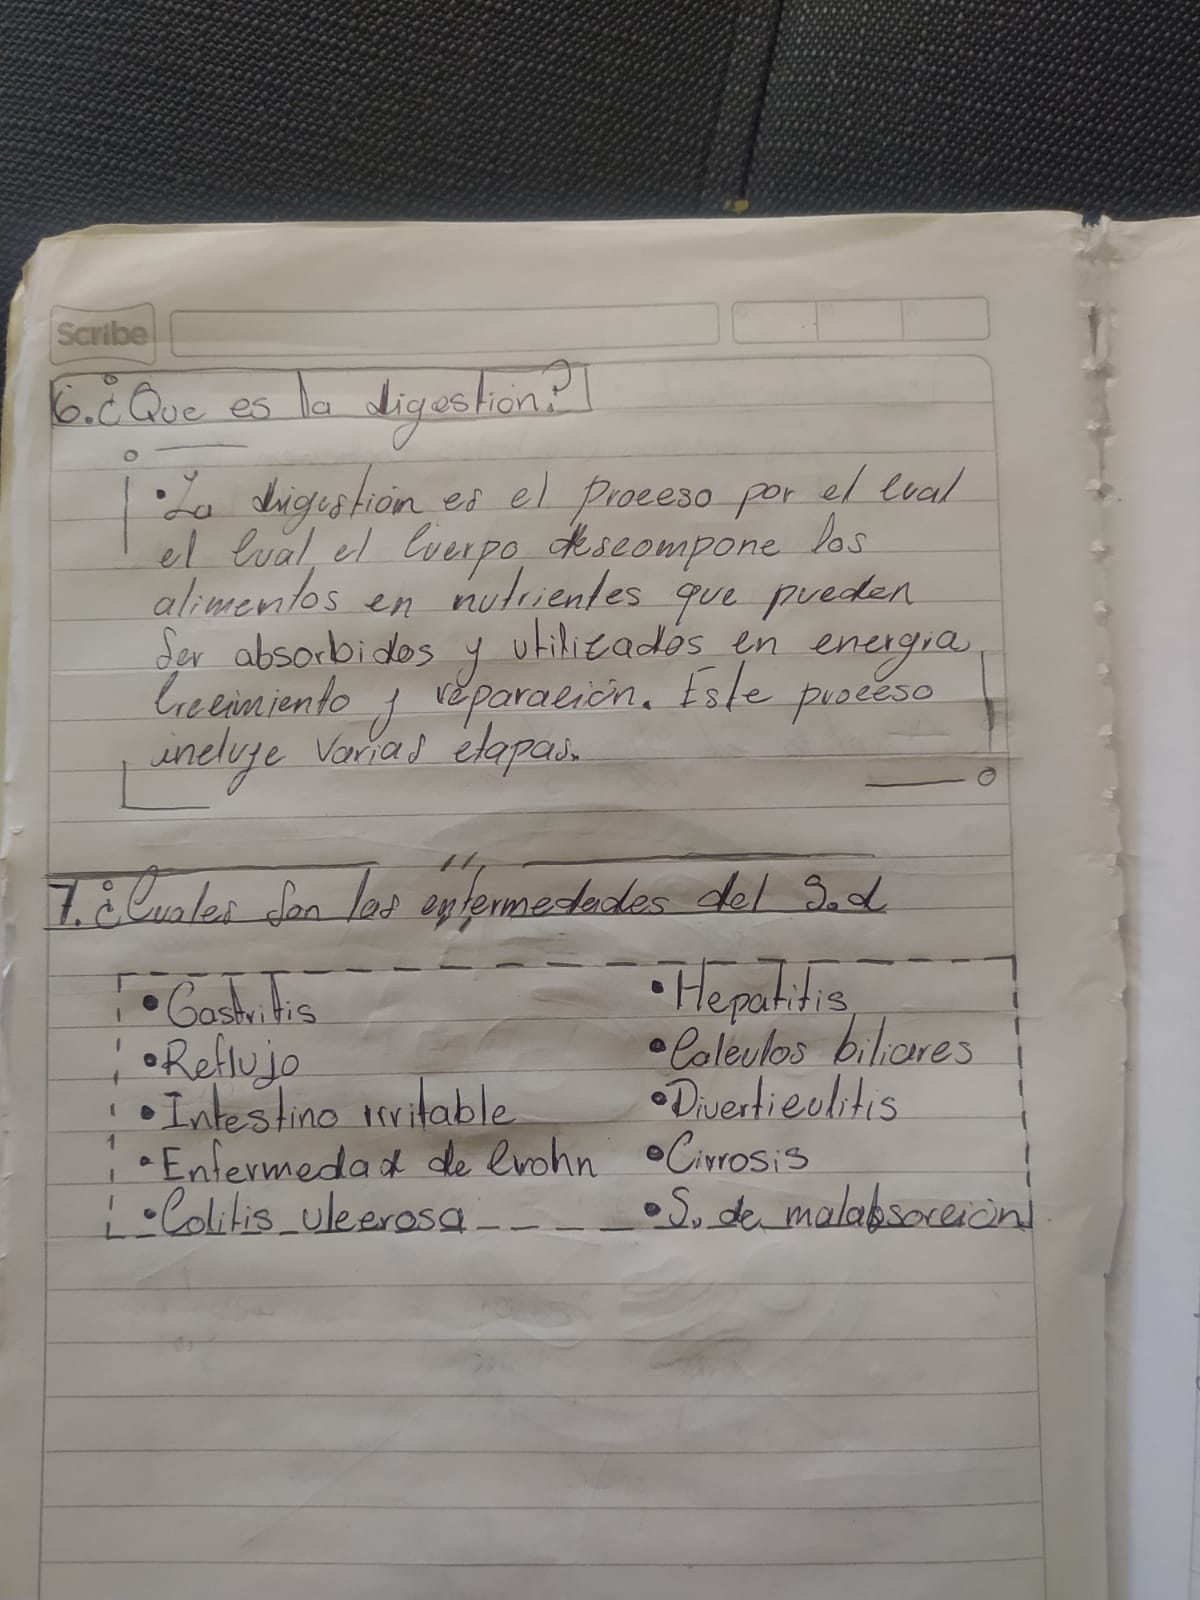 Scribe
6. ¿Que es la digestion?
• La digestion es el proceso por el cual
el cual el cuerpo descompone los
alimentos en nutrientes que pueden
ser absorbidos y utilizados en energia,
crecimiento y reparación. Este proceso
incluye varias etapas.
7. ¿Cuales son las enfermedades del S.d
• Gastritis
• Reflujo
• Intestino irritable
• Enfermedad de Crohn
• Colitis ulcerosa
• Hepatitis
• Calculos biliares
• Diverticulitis
• Cirrosis
• S. de malabsorción